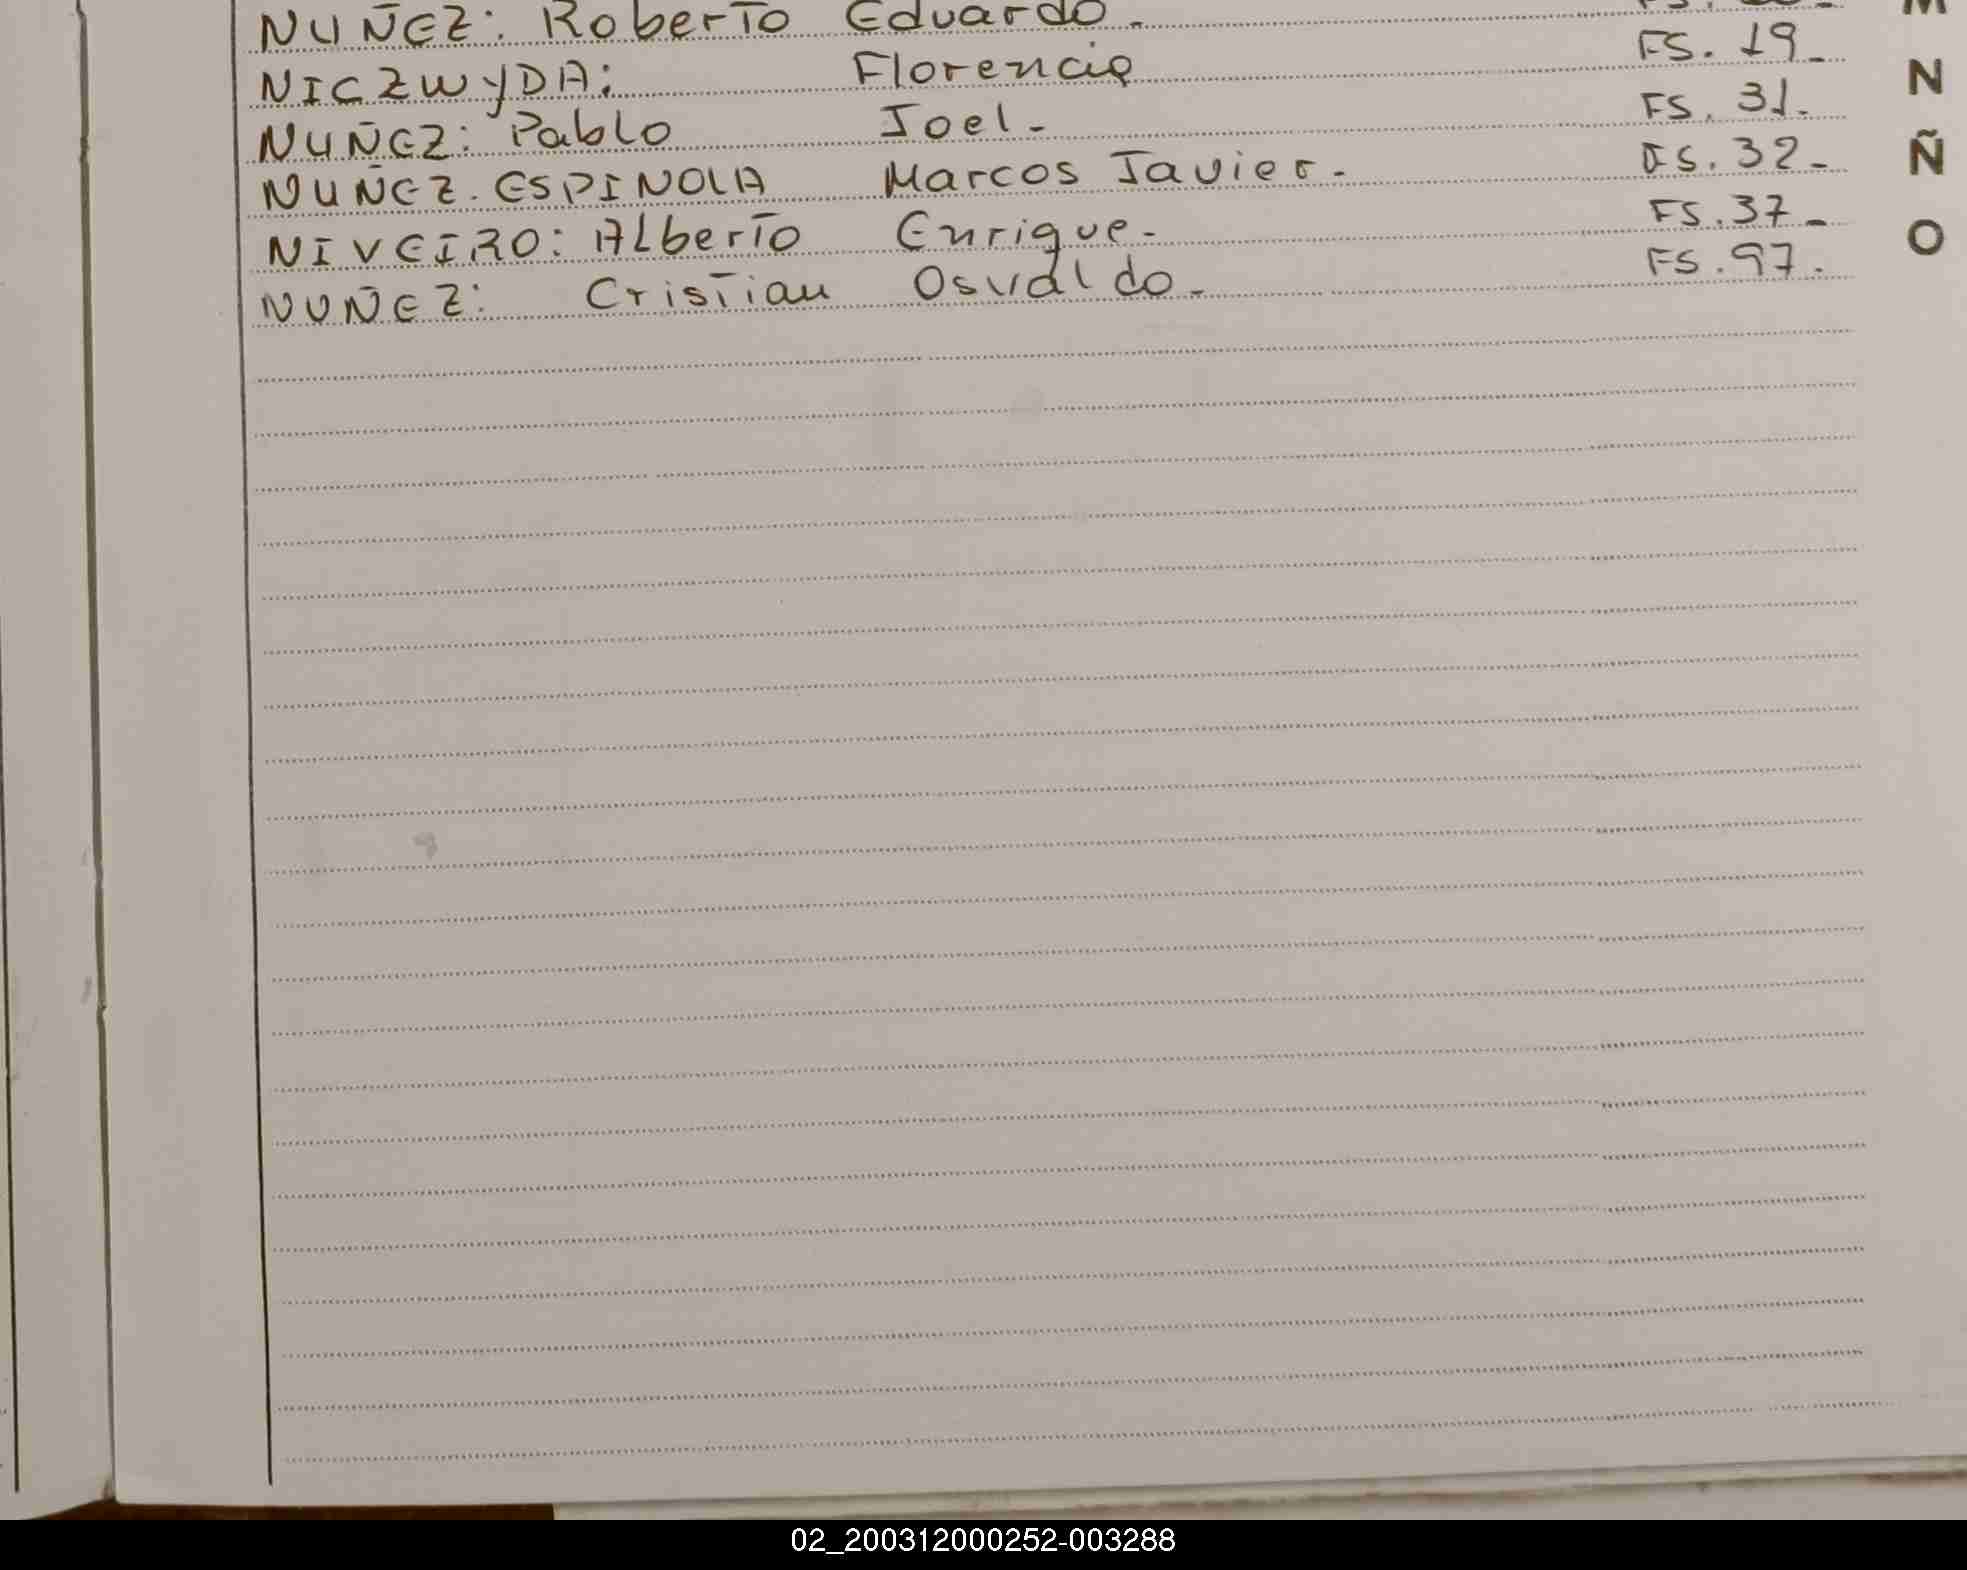 NUÑEZ: Roberto Eduardo. FS.
NICZWYDA: Florencia FS. 19.
NUÑEZ: Pablo Joel. FS. 31.
NUÑEZ. ESPINOLA Marcos Javier. FS. 32.
NIVEIRO: Alberto Enrique. FS. 37.
NUÑEZ: Cristian Osvaldo. FS. 97.
M
N
Ñ
O
02_200312000252-003288